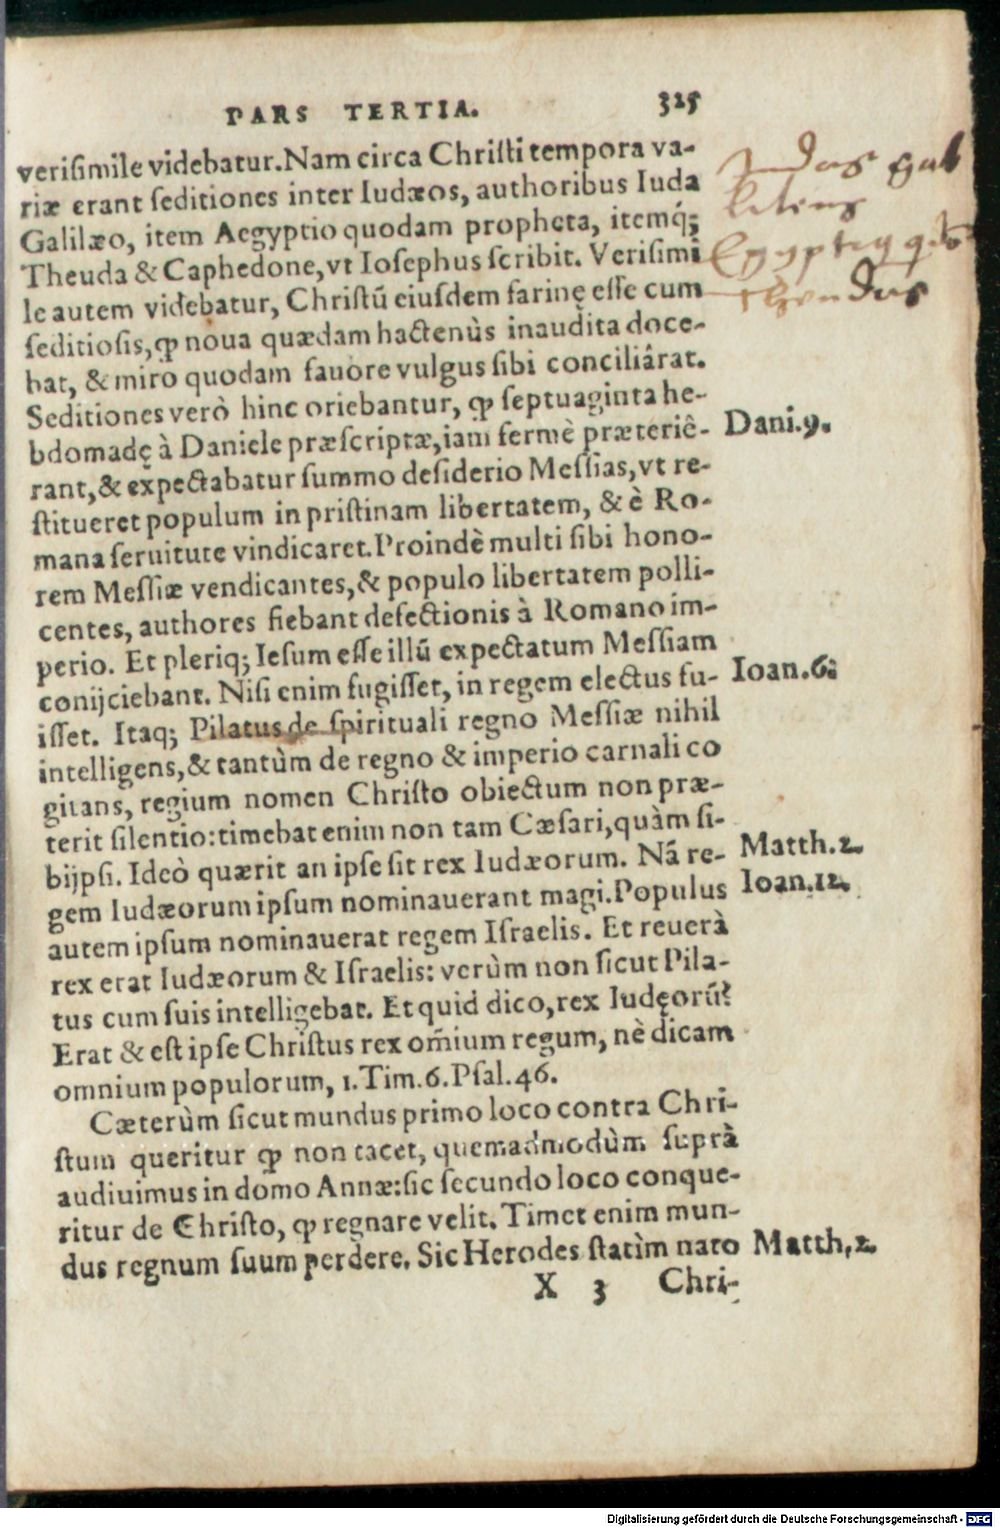 PARS TERTIA. 325
verisimile videbatur. Nam circa Christi tempora va-
riæ erant seditiones inter Iudæos, authoribus Iuda
Galilæo, item Aegyptio quodam propheta, itemq́;
Theuda & Caphedone, vt Iosephus scribit. Verisimi
le autem videbatur, Christũ eiusdem farinę esse cum
seditiosis, ꝙ noua quædam hactenùs inaudita doce-
bat, & miro quodam fauore vulgus sibi conciliârat.
Seditiones verò hinc oriebantur, ꝙ septuaginta he-
bdomadę à Daniele præscriptæ, iam fermè præteriê-
rant, & expectabatur summo desiderio Messias, vt re-
stitueret populum in pristinam libertatem, & è Ro-
mana seruitute vindicaret. Proindè multi sibi hono-
rem Messiæ vendicantes, & populo libertatem polli-
centes, authores fiebant defectionis à Romano im-
perio. Et pleriq; Iesum esse illũ expectatum Messiam
conijciebant. Nisi enim fugisset, in regem electus fu-
isset. Itaq; Pilatus de spirituali regno Messiæ nihil
intelligens, & tantùm de regno & imperio carnali co
gitans, regium nomen Christo obiectum non præ-
terit silentio: timebat enim non tam Cæsari, quàm si-
bijpsi. Ideò quærit an ipse sit rex Iudæorum. Nã re-
gem Iudæorum ipsum nominauerant magi. Populus
autem ipsum nominauerat regem Israelis. Et reuerà
rex erat Iudæorum & Israelis: verùm non sicut Pila-
tus cum suis intelligebat. Et quid dico, rex Iudęorũ?
Erat & est ipse Christus rex om̃ium regum, nè dicam
omnium populorum, 1. Tim. 6. Psal. 46.
Cæterùm sicut mundus primo loco contra Chri-
stum queritur ꝙ non tacet, quemadmodùm suprà
audiuimus in domo Annæ: sic secundo loco conque-
ritur de Christo, ꝙ regnare velit. Timet enim mun-
dus regnum suum perdere. Sic Herodes statìm nato
X 3 Chri-
Judas
Dani. 9.
Ioan. 6.
Matth. 2.
Ioan. 12.
Matth. 2.
Digitalisierung gefördert durch die Deutsche Forschungsgemeinschaft - DFG